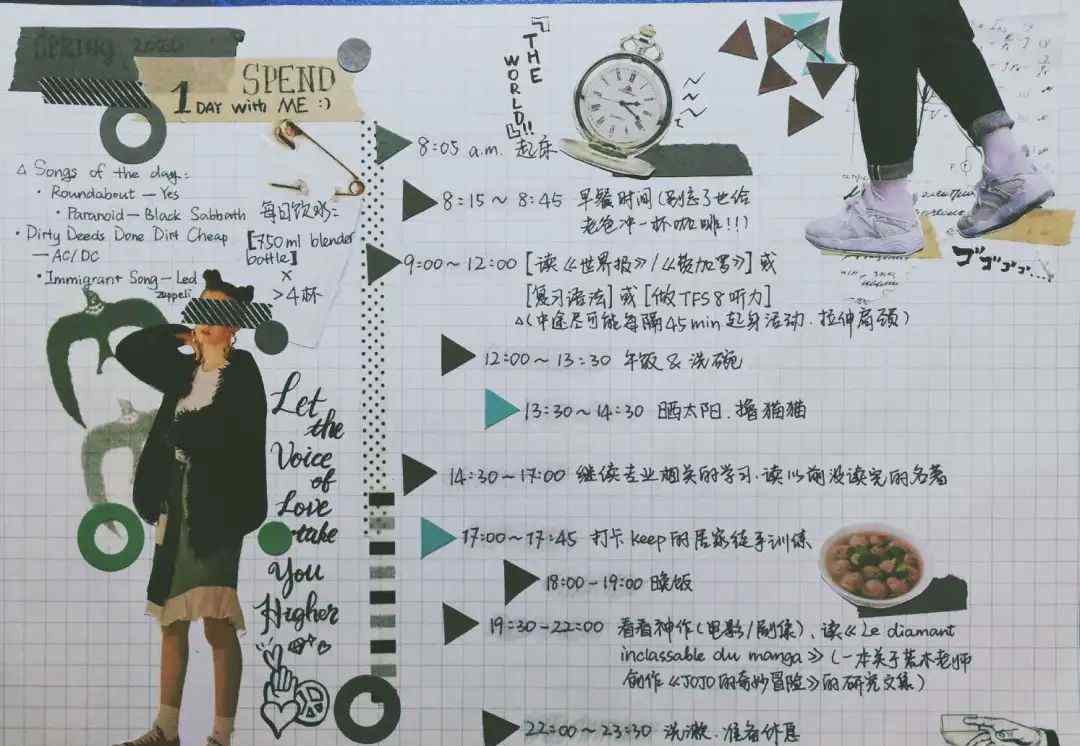 SPRING 2020
SPEND
1 DAY with ME :)
△ Songs of the day:
· Roundabout — Yes
· Paranoid — Black Sabbath
· Dirty Deeds Done Dirt Cheap
— AC/DC
· Immigrant Song — Led
Zeppeli
每日饮水:
[750ml blender
bottle]
×
>4杯
Let
the
Voice
of
Love
take
You
Higher
『THE
WORLD』!!
8:05 a.m. 起床
8:15~8:45 早餐时间(别忘了也给
老爸冲一杯咖啡!!!)
9:00~12:00 [读《世界报》/《费加罗》]或
[复习语法]或[做TFS8听力]
△(中途尽可能每隔45min起身活动.拉伸肩颈)
12:00~13:30 午饭 & 洗碗
13:30~14:30 晒太阳.撸猫猫
14:30~17:00 继续专业相关的学习.读以前没读完的名著
17:00~17:45 打卡keep的居家徒手训练
18:00-19:00 晚饭
19:30-22:00 看看神作(电影/剧集)、读《Le diamant
inclassable du manga》(一本关于荒木老师
创作《JOJO的奇妙冒险》的研究文集)
22:00~23:30 洗漱.准备休息
ゴゴゴゴ...